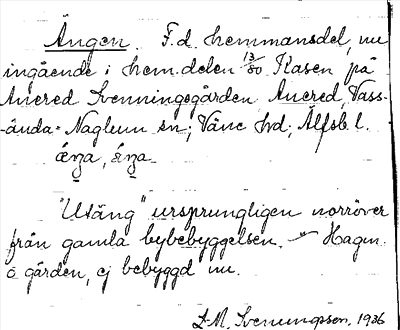 Ängen. F.d. hemmansdel, nu
ingående i hem.delen 13/80 Kasen på
Anered Svenningsgården Anered, Vass-
-ända-Naglum sn; Väne hd; Älfsb. l.
"Utäng" ursprungligen norröver
från gamla bybebyggelsen. Hagen
o gården, ej bebyggd nu.
L.M. Svenungsson, 1936